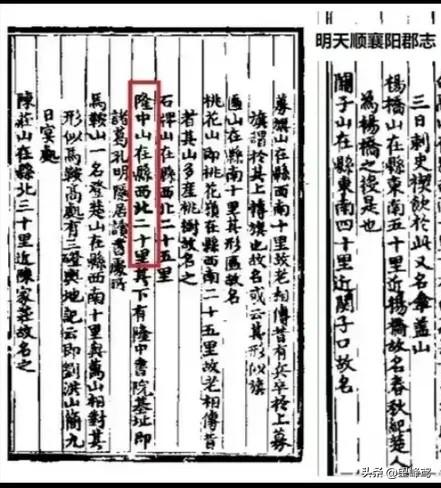 明天顺襄阳郡志
三日刺史禊飲於此又名傘蓋山
楊橋山在縣東南五十里近楊橋故名春秋紀楚人
為楊橋之役是也
關子山在縣東南四十里近關子口故名
募旗山在縣西南十里故老相傳昔有兵卒於上募
旗謂於其上旗也故名或云其形似旗
匾山在縣南十里其形匾故名
桃花山即桃花嶺在縣西南二十五里故老相傳昔
者其山多產桃樹故名之
石山在縣西北二十五里
隆中山在縣西北二十里其下有隆中書院基址即
諸葛孔明隱居讀書處所
馬鞍山一名登楚山在縣西南十里與萬山相對其
形似馬鞍高處有三磴輿地記云即劉洪山簡九
日宴處
陳莊山在縣北三十里近陳家莊故名之
头条 @里峰鸢